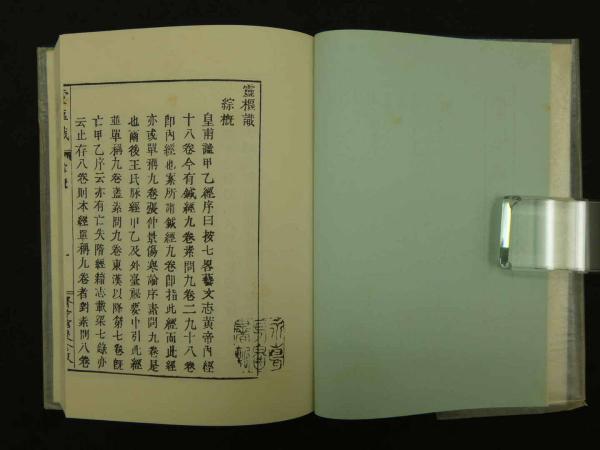 靈樞識
綜概
皇甫謐甲乙經序曰按七畧藝文志黃帝內經
十八卷今有鍼經九卷素問九卷二九十八卷
即內經也案所謂鍼經九卷即指此經而此經
亦或單稱九卷張仲景傷寒論序素問九卷是
也爾後王氏脉經甲乙及外臺秘要中引此經
並單稱九卷蓋素問九卷東漢以降第七卷既
亡甲乙序云亦有亡失隋經籍志載梁七錄亦
云止存八卷則本經單稱九卷者對素問八卷
靈樞識